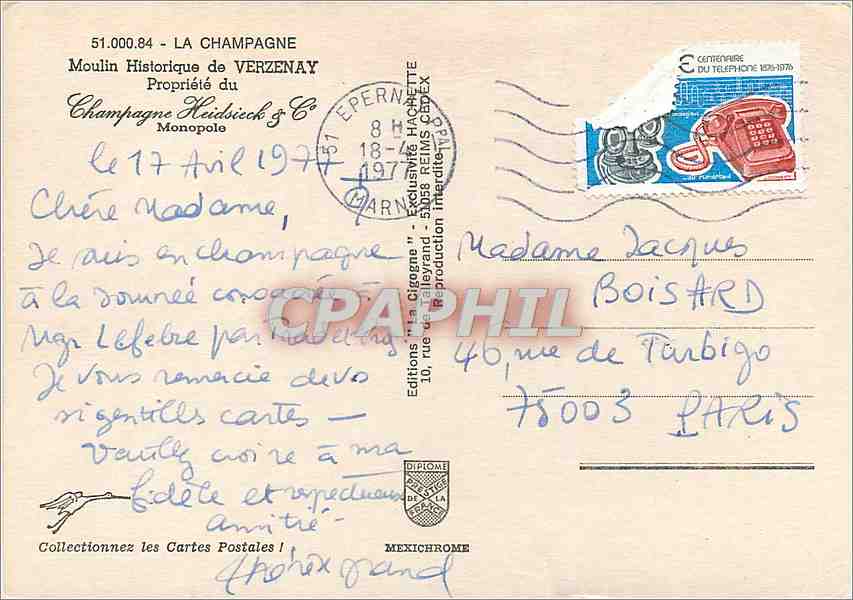 51.000.84 - LA CHAMPAGNE
Moulin Historique de VERZENAY
Propriété du
Champagne Heidsieck & Co
Monopole
le 17 Avril 1977
Chère Madame,
Je suis en champagne
à la Journeé consacrée à
Mgr Lefebre par
Je vous remercie de vos
si gentilles cartes —
Veuillez croire à ma
fidèle et respectueuse
amitié -
Collectionnez les Cartes Postales !
51 EPERNAY PPAL
8 H
18-4
1977
MARNE
Editions "La Cigogne" - Exclusivité HACHETTE
10, rue de Talleyrand - 51058 REIMS CEDEX
Reproduction interdite
DIPLOME
PRESTIGE
DE LA
FRANCE
MEXICHROME
CENTENAIRE
DU TELEPHONE 1876-1976
Madame Jacques
BOISARD
46, rue de Turbigo
75003 PARIS
CPAPHIL